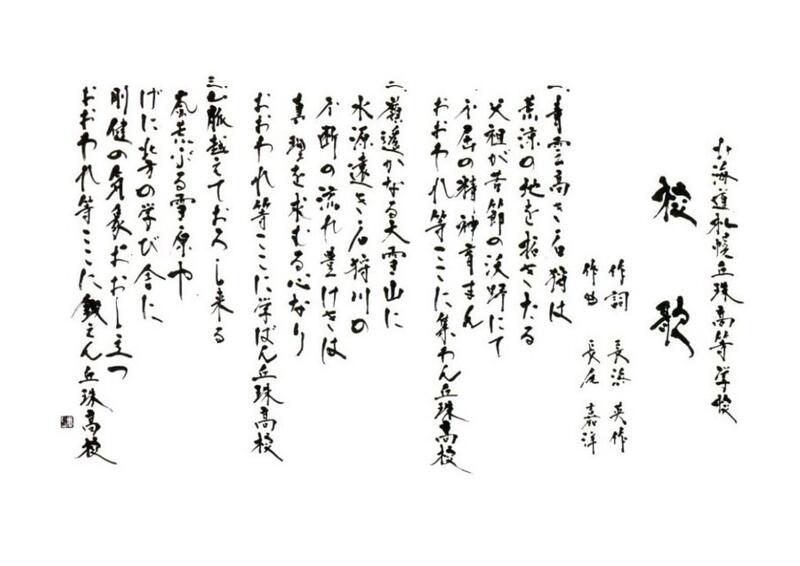 北海道札幌丘珠高等学校
校歌
作詞 長浜英作
作曲 長尾嘉洋
一、青雲高き石狩は
荒涼の地を拓きたる
父祖が苦節の沃野にて
不屈の精神育まん
おおわれ等ここに集わん丘珠高校
二、嶺遥かなる大雪山に
水源遠き石狩川の
不断の流れ豊けきは
真理を求むる心なり
おおわれ等ここに学ばん丘珠高校
三、山脈越えておろし来る
気荒ぶる雪原や
げに北方の学び舎に
剛健の気象おおし立つ
おおわれ等ここに鍛えん丘珠高校